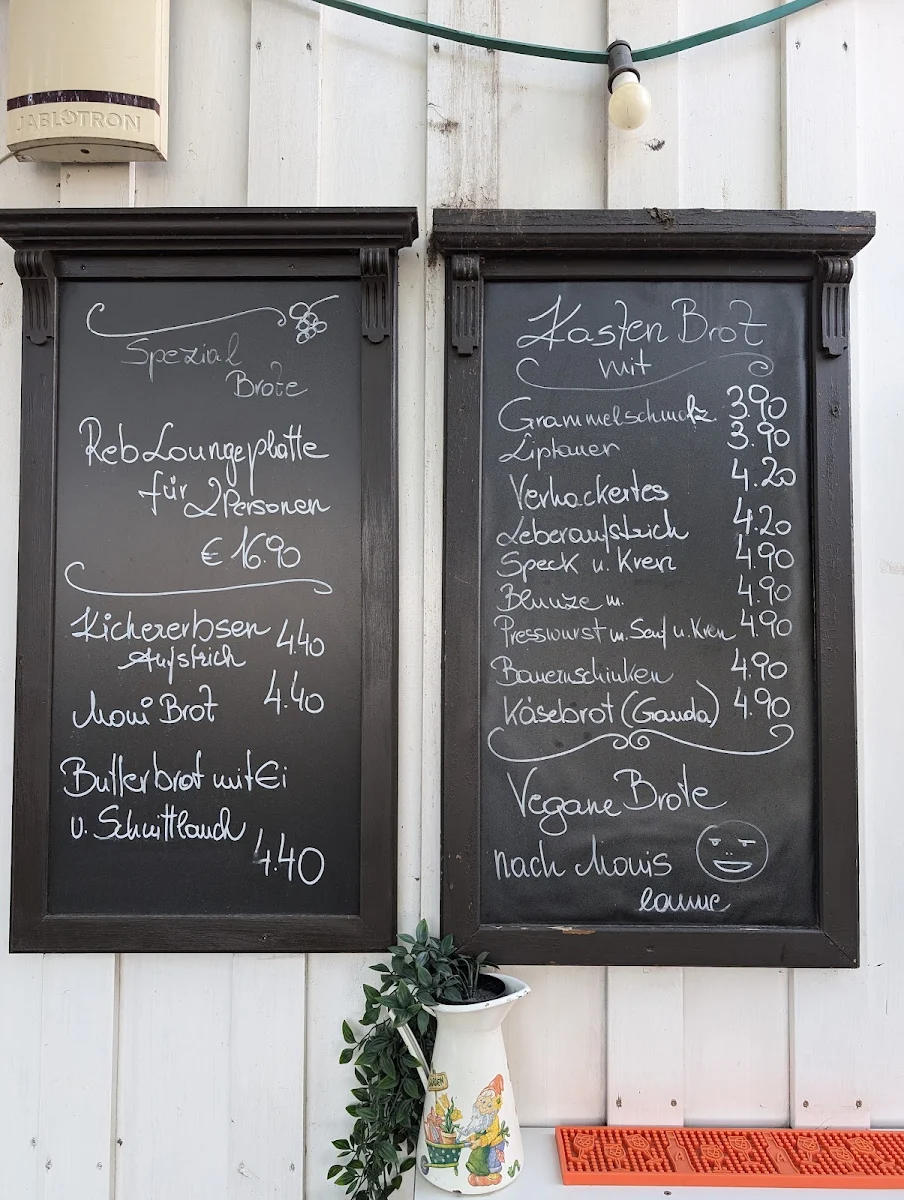 JABLOTRON
Spezial
Brote
Reb Loungeplatte
für 2 Personen
€ 16.90
Kichererbsen 4.40
Aufstrich
Moni Brot 4.40
Butterbrot mit Ei
u. Schnittlauch
4.40
Kasten Brot
mit
Grammelschmalz 3.90
Liptauer 3.90
Verhackertes 4.20
Leberaufstrich 4.20
Speck u. Kren 4.90
Blunze m. 4.90
Presswurst m. Senf u. Kren 4.90
Bauernschinken 4.90
Käsebrot (Gauda) 4.90
Vegane Brote
nach Monis
laune